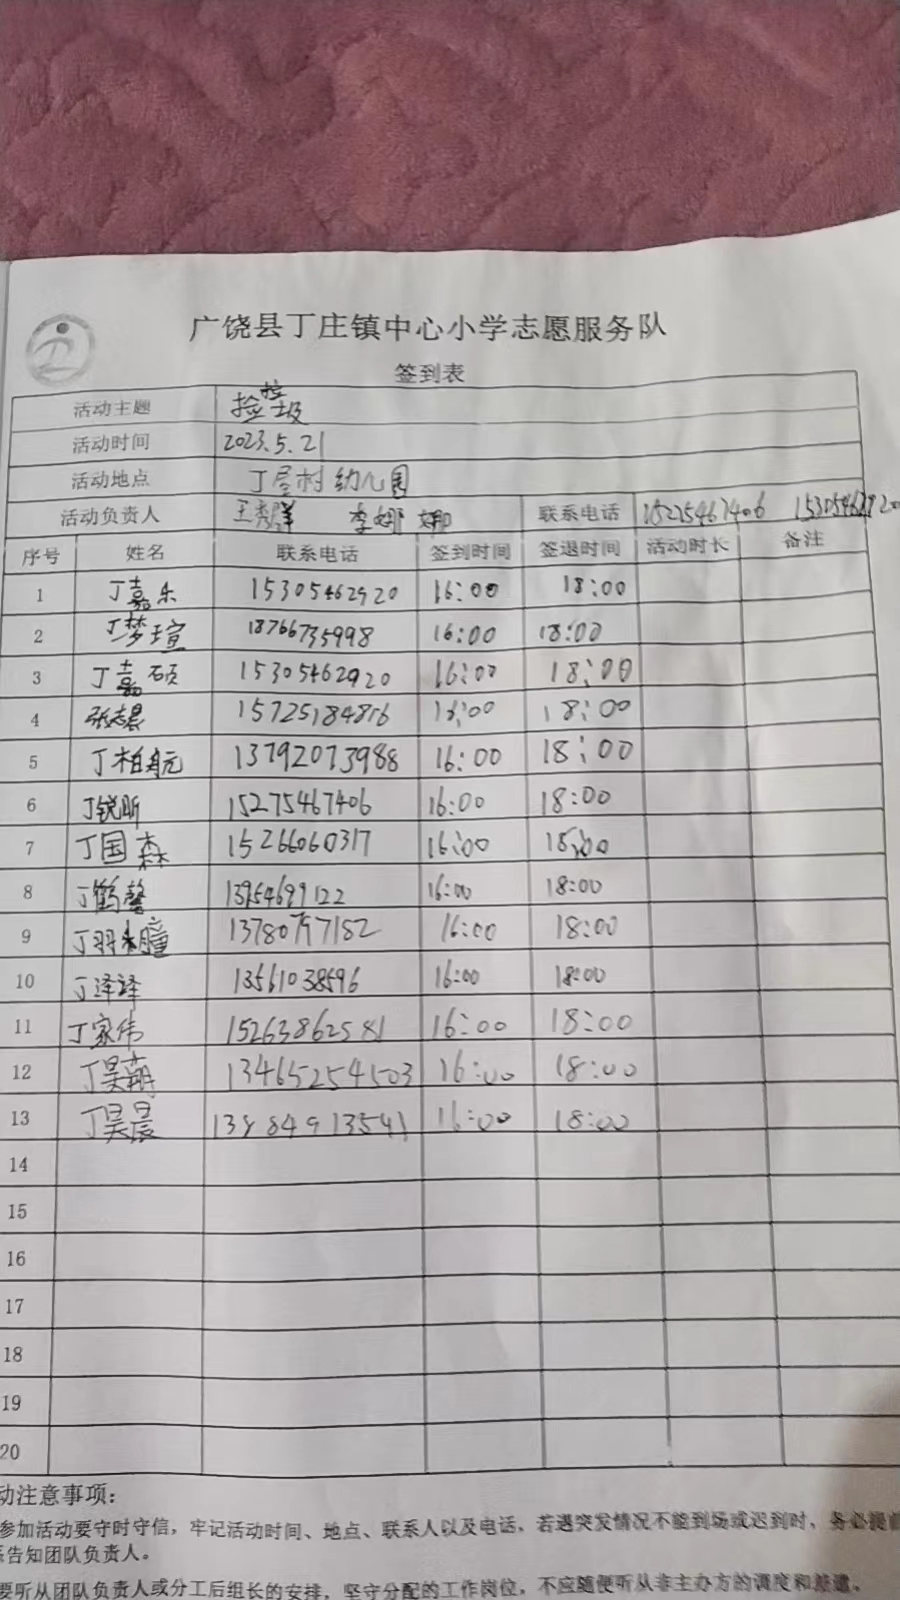 广饶县丁庄镇中心小学志愿服务队
签到表
活动主题 捡垃圾
活动时间 2023.5.21
活动地点 丁屋村幼儿园
活动负责人 王秀群 李娜娜 联系电话 15275467406
序号 姓名 联系电话 签到时间 签退时间 活动时长 备注
1 丁嘉乐 15305462920 16:00 18:00
2 丁梦瑄 18766735998 16:00 18:00
3 丁嘉硕 15305462920 16:00 18:00
4 张志晨 15725184816 18:00
5 丁柏航 13792073988 16:00 18:00
6 丁锐昕 15275467406 16:00 18:00
7 丁国森 15266060317 16:00 18:00
8 丁鹤馨 13954699122 16:00 18:00
9 丁羽瞳 16:00 18:00
10 丁泽译 13561038596 16:00 18:00
11 丁家伟 15263862581 16:00 18:00
12 丁昊萌 13465254503 16:00 18:00
13 丁昊晨 16:00 18:00
14
15
16
17
18
19
20
动注意事项：
参加活动要守时守信，牢记活动时间、地点、联系人以及电话，若遇突发情况不能到场或迟到时、务必提前
系告知团队负责人。
要听从团队负责人或分工后组长的安排，坚守分配的工作岗位，不应随便听从非主办方的调度和差遣。